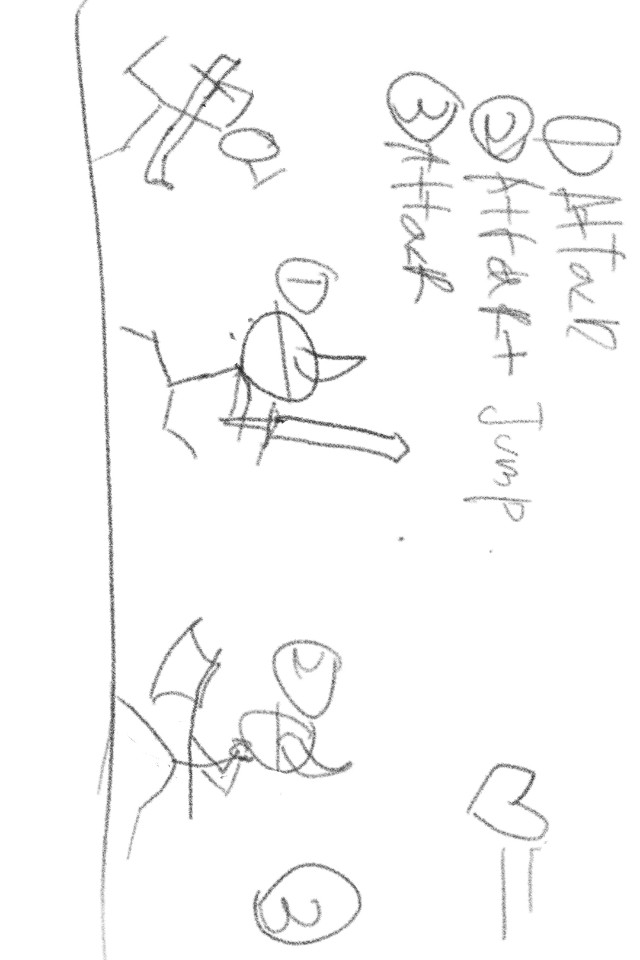 ① Attack
② Attack + Jump
③ Attack
①
②
③